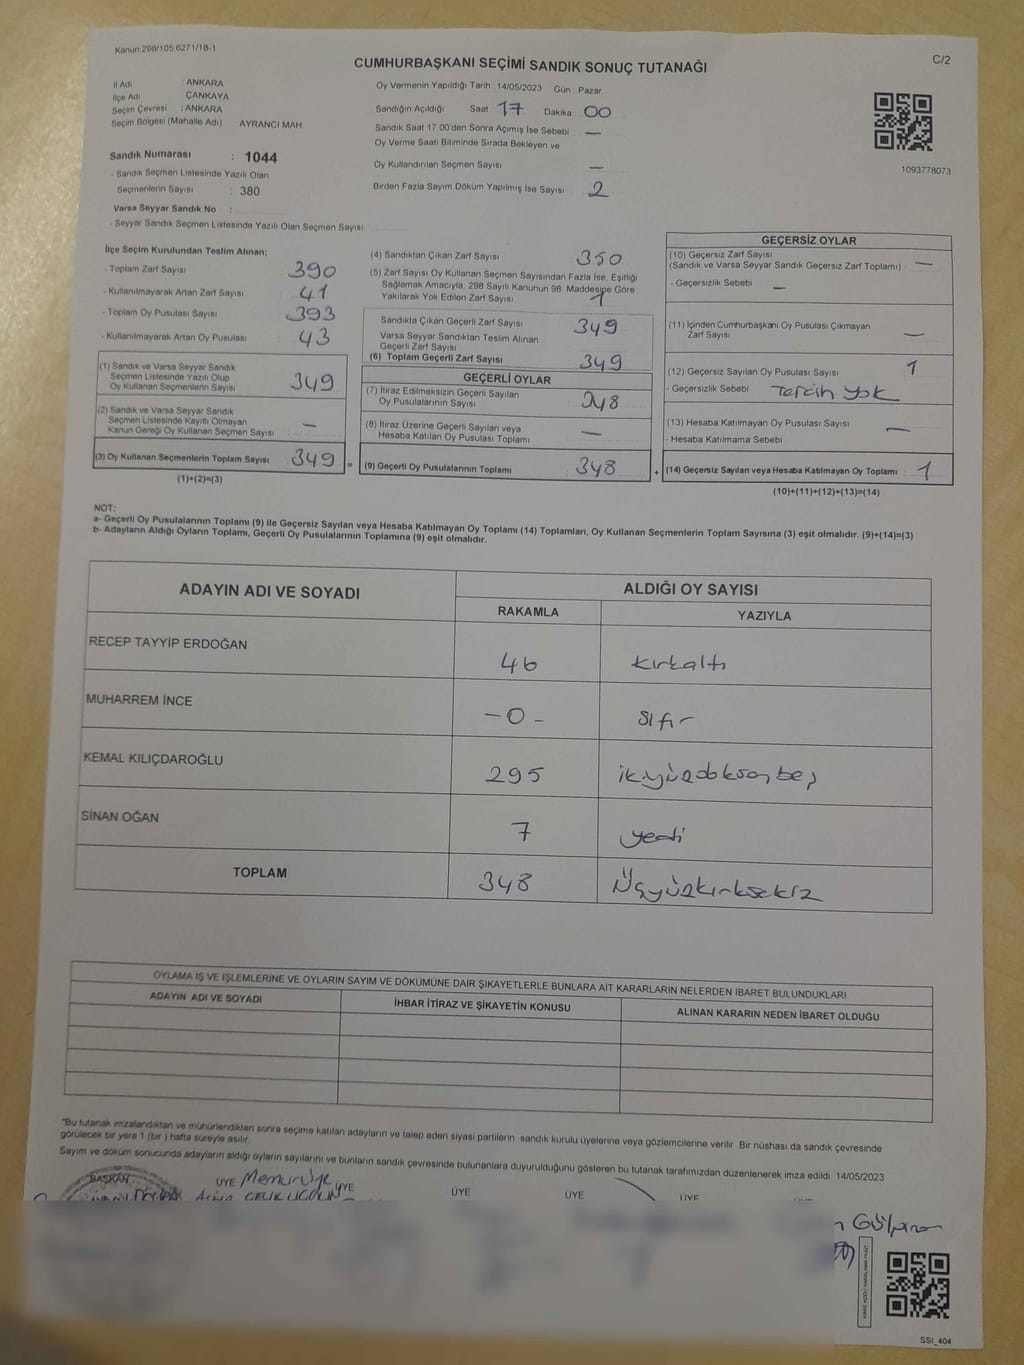 Kanun:298/105,6271/18-1
C/2
CUMHURBAŞKANI SEÇİMİ SANDIK SONUÇ TUTANAĞI
İl Adı : ANKARA
İlçe Adı : ÇANKAYA
Seçim Çevresi : ANKARA
Seçim Bölgesi (Mahalle Adı) : AYRANCI MAH.
Sandık Numarası : 1044
- Sandık Seçmen Listesinde Yazılı Olan
Seçmenlerin Sayısı : 380
Varsa Seyyar Sandık No :
- Seyyar Sandık Seçmen Listesinde Yazılı Olan Seçmen Sayısı
Oy Vermenin Yapıldığı Tarih : 14/05/2023 Gün Pazar
Sandığın Açıldığı Saat 17 Dakika 00
Sandık Saat 17:00'den Sonra Açımış İse Sebebi —
Oy Verme Saati Bitiminde Sırada Bekleyen ve
Oy Kullandırılan Seçmen Sayısı —
Birden Fazla Sayım Döküm Yapılmış İse Sayısı 2
1093778073
İlçe Seçim Kurulundan Teslim Alınan;
- Toplam Zarf Sayısı 390
- Kullanılmayarak Artan Zarf Sayısı 41
- Toplam Oy Pusulası Sayısı 393
- Kullanılmayarak Artan Oy Pusulası 43
(1) Sandık ve Varsa Seyyar Sandık
Seçmen Listesinde Yazılı Olup
Oy Kullanan Seçmenlerin Sayısı 349
(2) Sandık ve Varsa Seyyar Sandık
Seçmen Listesinde Kayıtlı Olmayan
Kanun Gereği Oy Kullanan Seçmen Sayısı —
(3) Oy Kullanan Seçmenlerin Toplam Sayısı 349 =
(1)+(2)=(3)
(4) Sandıktan Çıkan Zarf Sayısı 350
(5) Zarf Sayısı Oy Kullanan Seçmen Sayısından Fazla İse, Eşitliği
Sağlamak Amacıyla, 298 Sayılı Kanunun 98. Maddesine Göre
Yakılarak Yok Edilen Zarf Sayısı 1
Sandıkta Çıkan Geçerli Zarf Sayısı 349
Varsa Seyyar Sandıktan Teslim Alınan
Geçerli Zarf Sayısı
(6) Toplam Geçerli Zarf Sayısı 349
GEÇERLİ OYLAR
(7) İtiraz Edilmeksizin Geçerli Sayılan
Oy Pusulalarının Sayısı 348
(8) İtiraz Üzerine Geçerli Sayılan veya
Hesaba Katılan Oy Pusulası Toplamı —
(9) Geçerli Oy Pusulalarının Toplamı 348 +
GEÇERSİZ OYLAR
(10) Geçersiz Zarf Sayısı
(Sandık ve Varsa Seyyar Sandık Geçersiz Zarf Toplamı) —
- Geçersizlik Sebebi —
(11) İçinden Cumhurbaşkanı Oy Pusulası Çıkmayan
Zarf Sayısı —
(12) Geçersiz Sayılan Oy Pusulası Sayısı 1
- Geçersizlik Sebebi Tercih yok
(13) Hesaba Katılmayan Oy Pusulası Sayısı —
- Hesaba Katılmama Sebebi
(14) Geçersiz Sayılan veya Hesaba Katılmayan Oy Toplamı 1
(10)+(11)+(12)+(13)=(14)
NOT:
a- Geçerli Oy Pusulalarının Toplamı (9) ile Geçersiz Sayılan veya Hesaba Katılmayan Oy Toplamı (14) Toplamları, Oy Kullanan Seçmenlerin Toplam Sayısına (3) eşit olmalıdır. (9)+(14)=(3)
b- Adayların Aldığı Oyların Toplamı, Geçerli Oy Pusulalarının Toplamına (9) eşit olmalıdır.
ADAYIN ADI VE SOYADI ALDIĞI OY SAYISI
RAKAMLA YAZIYLA
RECEP TAYYİP ERDOĞAN 46 kırkaltı
MUHARREM İNCE -0- sıfır
KEMAL KILIÇDAROĞLU 295 ikiyüzdoksanbeş
SİNAN OĞAN 7 yedi
TOPLAM 348 Üçyüzkırksekiz
OYLAMA İŞ VE İŞLEMLERİNE VE OYLARIN SAYIM VE DÖKÜMÜNE DAİR ŞİKAYETLERLE BUNLARA AİT KARARLARIN NELERDEN İBARET BULUNDUKLARI
ADAYIN ADI VE SOYADI İHBAR İTİRAZ VE ŞİKAYETİN KONUSU ALINAN KARARIN NEDEN İBARET OLDUĞU
*Bu tutanak imzalandıktan ve mühürlendikten sonra seçime katılan adayların ve talep eden siyasi partilerin sandık kurulu üyelerine veya gözlemcilerine verilir. Bir nüshası da sandık çevresinde
görülecek bir yere 1 (bir) hafta süreyle asılır.
Sayım ve döküm sonucunda adayların aldığı oyların sayılarını ve bunların sandık çevresinde bulunanlara duyurulduğunu gösteren bu tutanak tarafımızdan düzenlenerek imza edildi. 14/05/2023
BAŞKAN ÜYE ÜYE ÜYE ÜYE ÜYE
SSI_404